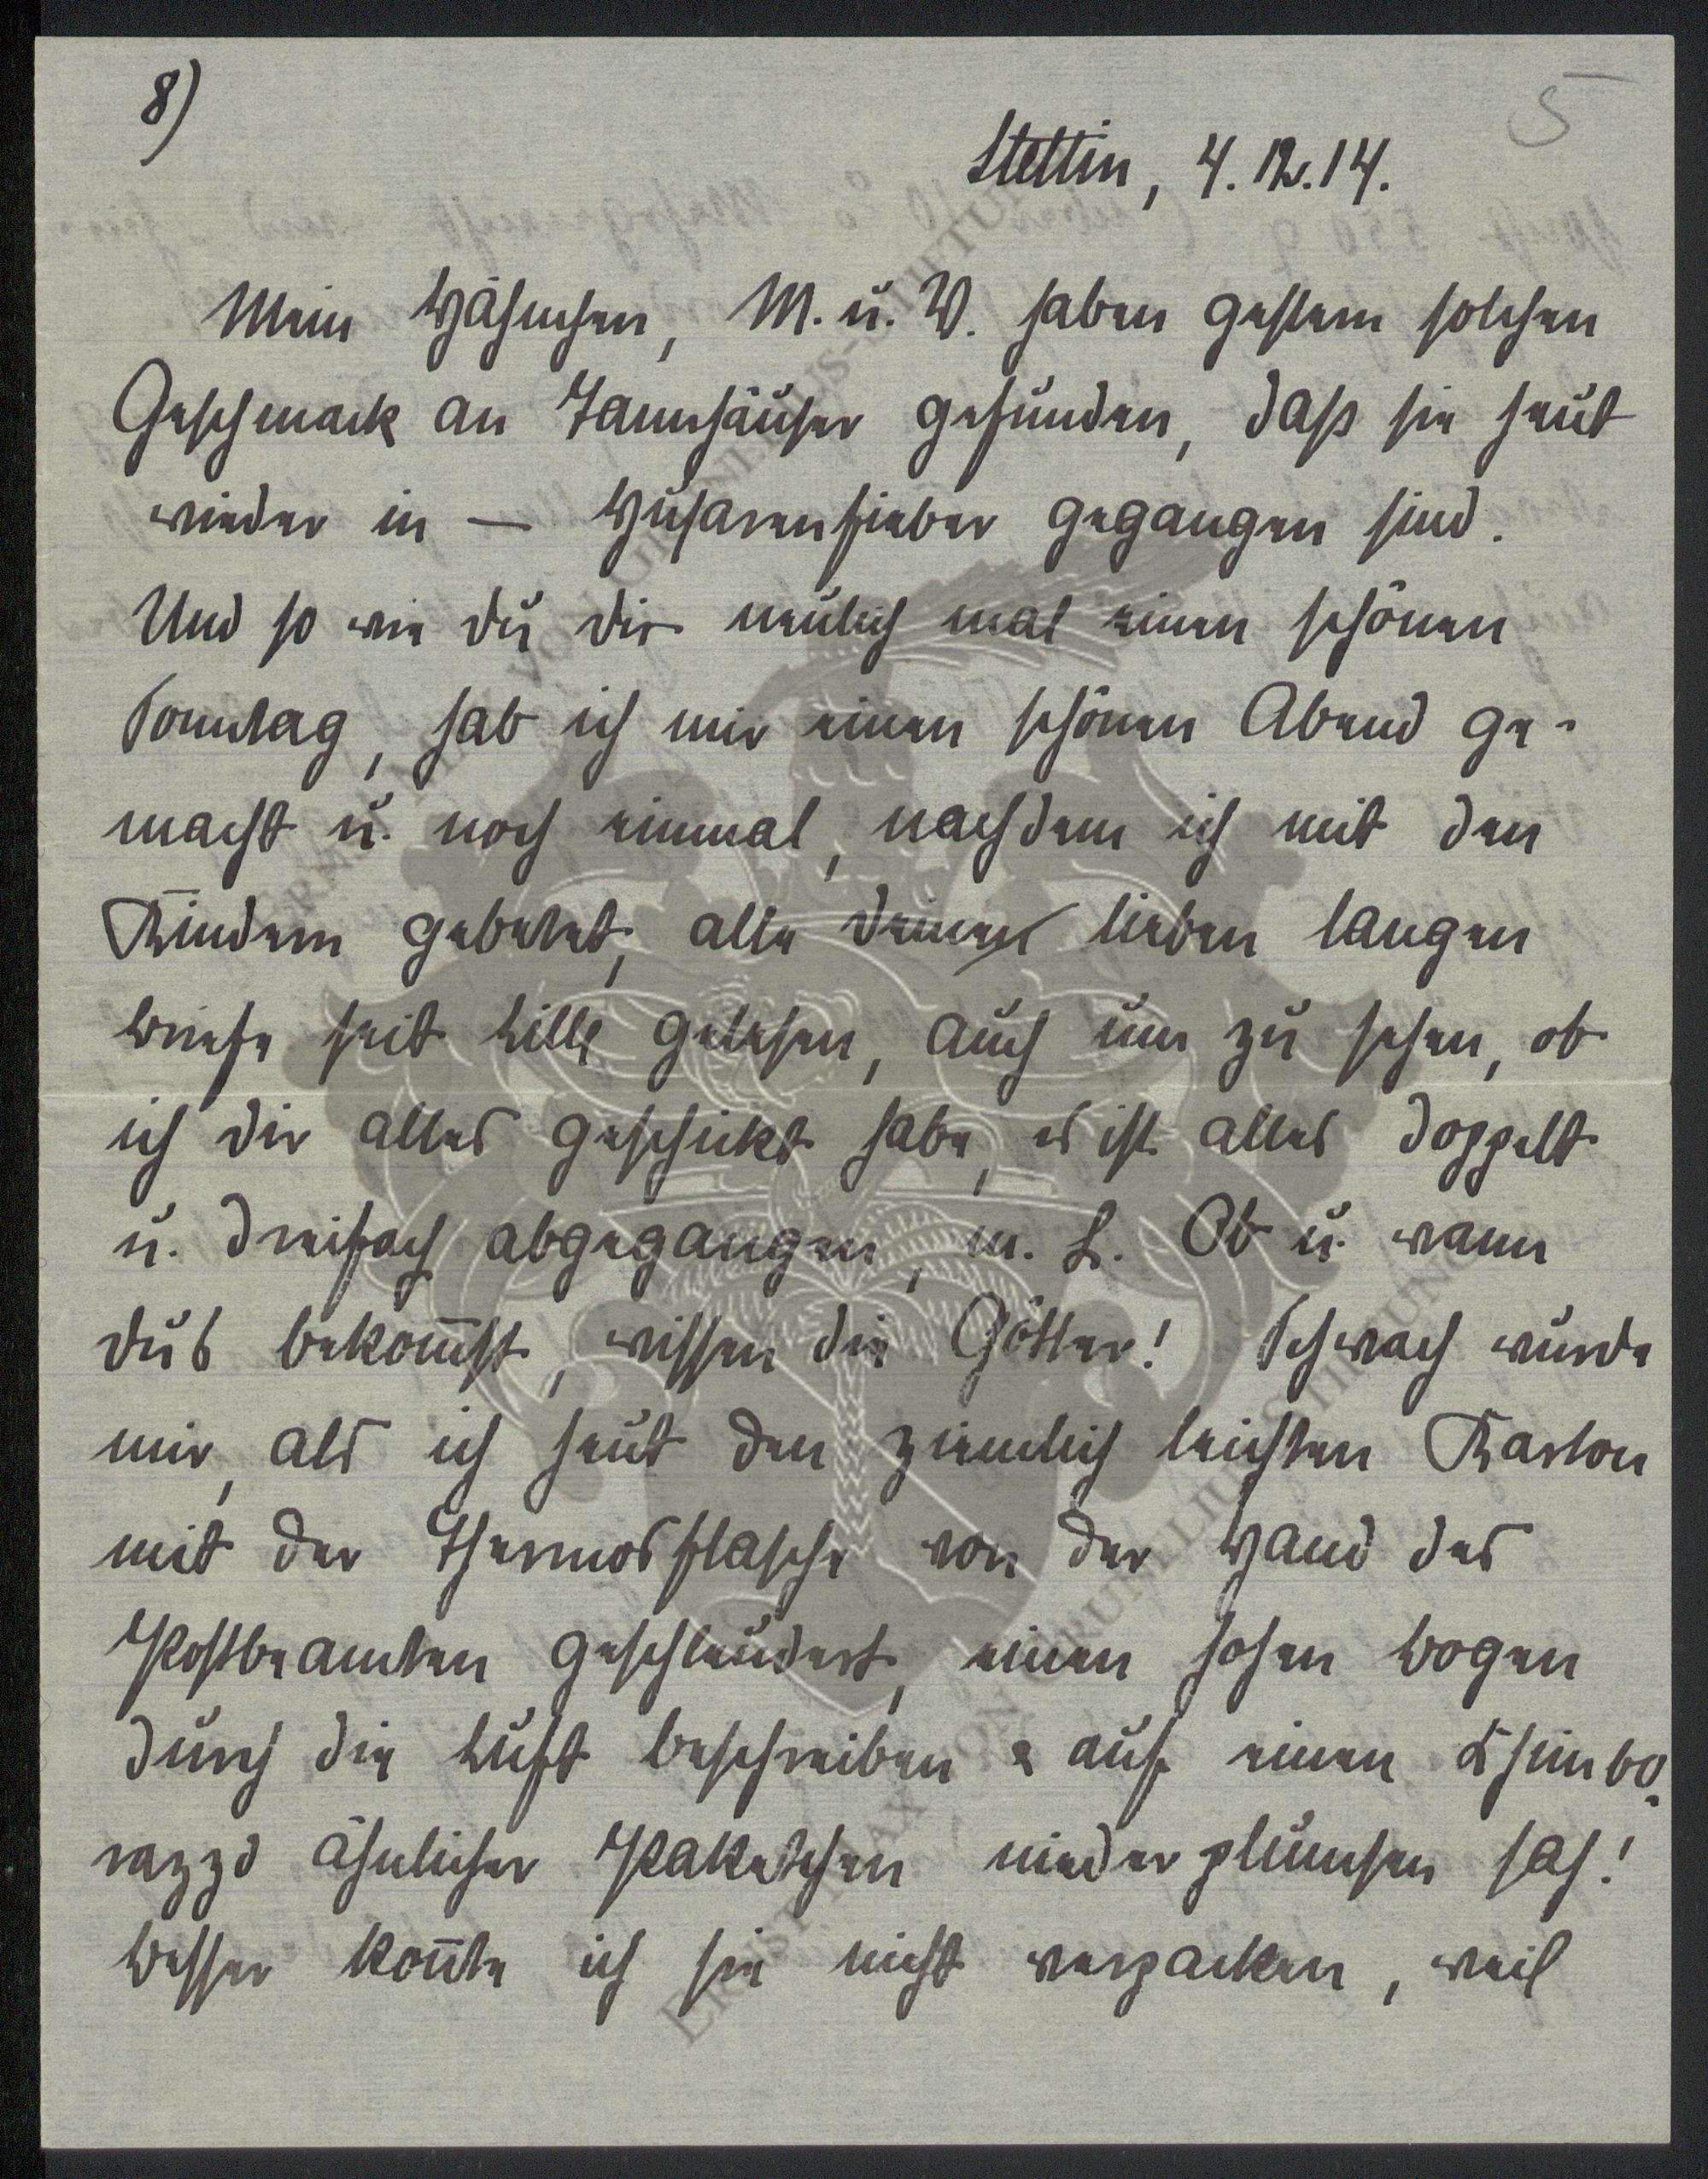 8)
5
Stettin, 4.12.14.
Mein Hähnchen, M. u. V. haben gestern solchen
Geschmack an Tannhäuser gefunden, daß sie heut
wieder in — Husarenfieber gegangen sind.
Und so wie du dir neulich mal einen schönen
Sonntag, hab ich mir einen schönen Abend ge-
macht u. noch einmal, nachdem ich mit den
Kindern gebetet, alle deine lieben langen
Briefe seit Lille gelesen, auch um zu sehen, ob
ich dir alles geschickt habe, es ist alles doppelt
u. dreifach abgegangen, m. L. Ob u. wann
dus bekommst, wissen die Götter! Schwach wurde
mir, als ich heut den ziemlich leichten Karton
mit der Thermosflasche von der Hand des
Postbeamten geschleudert, einen hohen Bogen
durch die Luft beschreiben & auf einen Chimbo-
razzo ähnlicher Paketchen niederplumsen sah!
Besser konnte ich sie nicht verpacken, weil